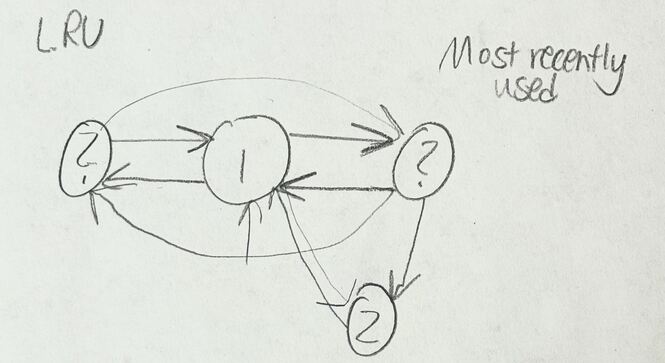 LRU
Most recently
used
?
1
?
2